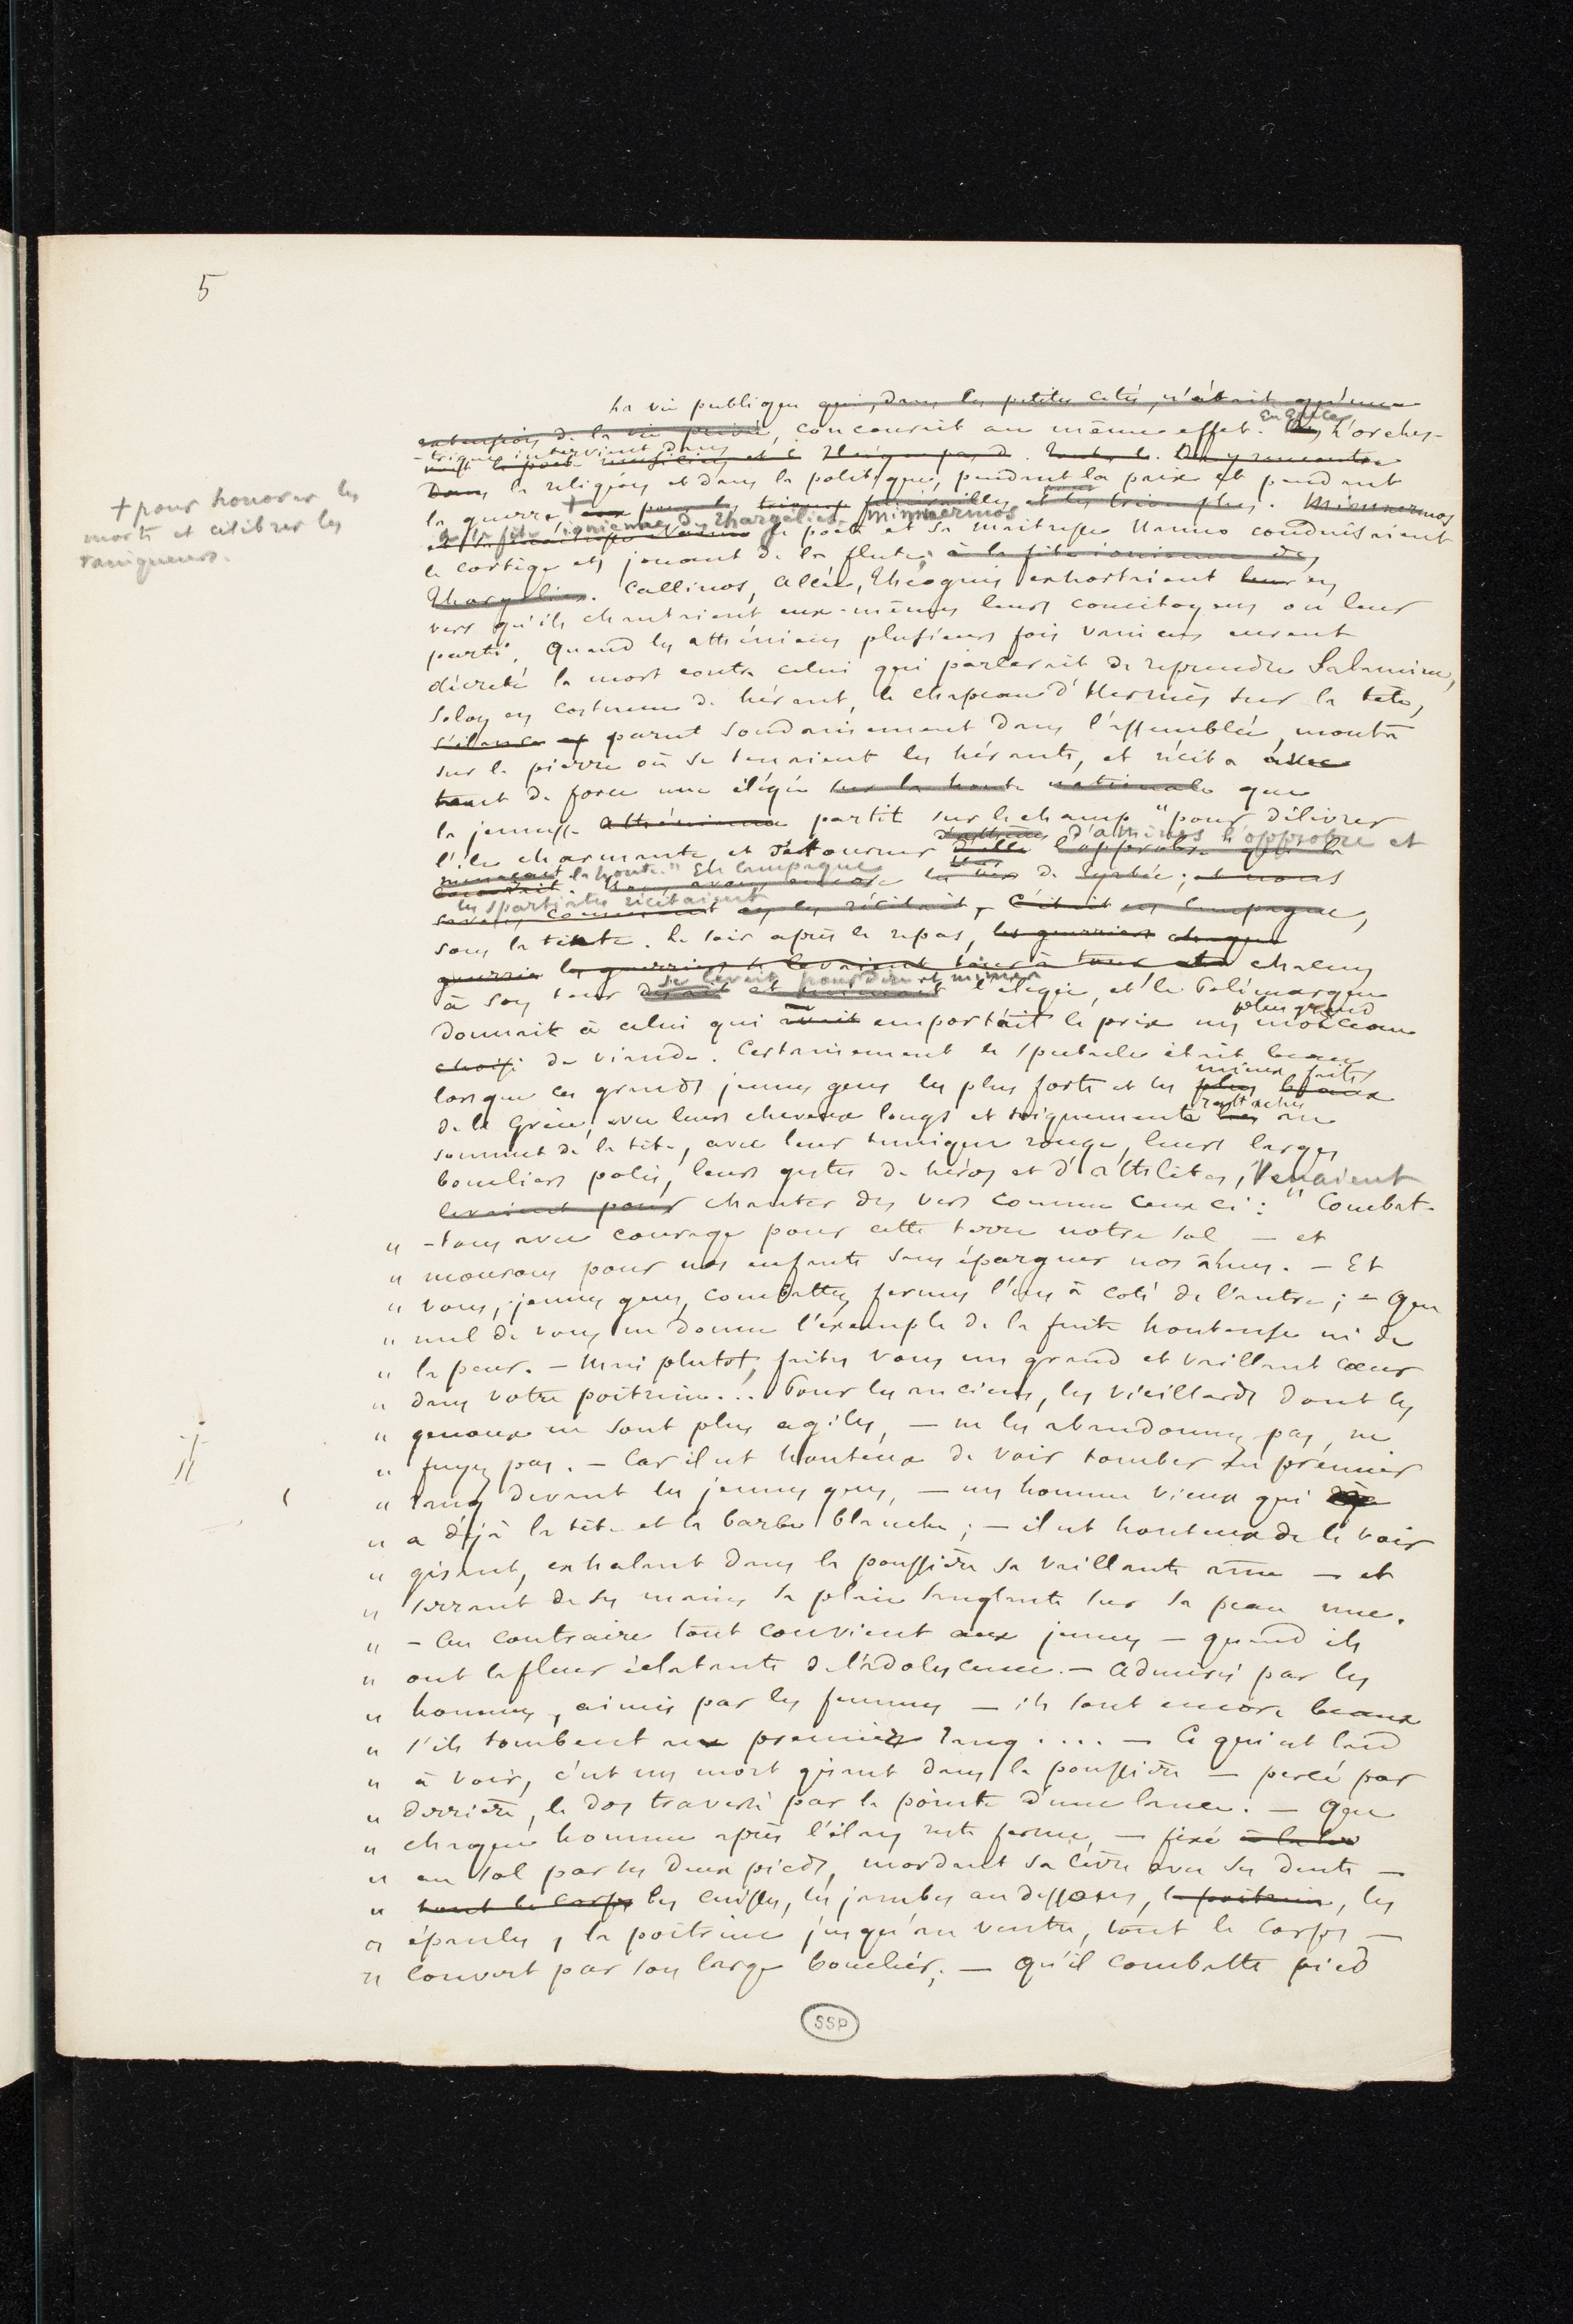 5
La vie publique qui, dans les petites cités, n'était qu'une
extension de la vie privée, concourait au même effet. En Grèce, l'orches-
-trique intervient dans
Dans la religion et dans la politique, pendant la paix et pendant
la guerre + et les triomphes. Mimnermos
+ pour honorer les
morts et célébrer les
vainqueurs.
à la fête ionienne des Thargélies. Mimnermos
le poète et sa maitresse Nanno conduisaient
le cortège en jouant de la flute, à la fête ionienne des
Thargélies. Callinos, Alcée, Théognis exhortaient leur en
vers qu'ils chantaient eux-mêmes leurs concitoyens ou leur
parti. Quand les athéniens plusieurs fois vaincus eurent
décreté la mort contre celui qui parlerait de reprendre Salamine,
Solon en costume de héraut, le chapeau d'Hermès sur la tete,
s'élance et parut soudainement dans l'assemblée, monta
sur la pierre où se tenaient les hérauts, et récita avec
tant de force une élégie sur la honte nationale que
la jeunesse athénienne partit sur le champ "pour délivrer
l'ile charmante et détourner d'elle l'opprobre
d'Athènes l'opprobre et
la honte." En campagne
de Tyrtée; et nous
les spartiates récitaient
savons comment on les récitait, C'était en campagne,
sous la tente. Le soir après le repas, les guerriers chaque
guerrier les guerriers se levaient tour à tour chacun
se levait pour dire et mimer
à son tour disait et mimait l'élégie, et le Polémarque
donnait à celui qui avait emportait le prix un morceau
plus grand
choisi de viande. Certainement le spectacle était beau
lorsque ces grands jeunes gens les plus forts et les plus beaux
mieux faits
de la Grèce, avec leurs cheveux longs et soigneusement liés au
rattachés
sommet de la tête, avec leur tunique rouge, leurs larges
boucliers polis, leurs gestes de héros et d'athlètes, venaient
levaient pour chanter des vers comme ceux ci: " Combat-
" -tons avec courage pour cette terre notre sol – et
" mourons pour nos enfants sans épargner nos âmes. – Et
" vous, jeunes gens, combattez fermes l'un à coté de l'autre; – Que
" nul de vous ne donne l'exemple de la fuite honteuse ni de
" la peur. – Mais plutot, faites vous un grand et vaillant cœur
" dans votre poitrine... Pour les anciens, les vieillards dont les
" genoux ne sont plus agiles, – ne les abandonnez pas, ne
" fuyez pas. – Car il est honteux de voir tomber au premier
" rang devant les jeunes gens, – un homme vieux qui
" a déjà la tête et la barbe blanche; – il est honteux de le voir
" gisant, exhalant dans la poussière sa vaillante ame – et
" serrant de ses mains sa plaie sanglante sur sa peau nue.
" – Au contraire tout convient aux jeunes – quand ils
" ont la fleur éclatante de l'adolescence. – Admirés par les
" hommes, aimés par les femmes – ils sont encore beaux
" s'ils tombent au premier rang .... – Ce qui est laid
" à voir, c'est un mort gisant dans la poussière – percé par
" derrière, le dos traversé par la pointe d'une lance. – Que
" chaque homme après l'élan reste ferme, – fixé à la terre
" au sol par les deux pieds, mordant sa lèvre avec ses dents –
" tout le corps les cuisses, les jambes au dessous, la poitrine, les
" épaules, la poitrine jusqu'au ventre, tout le corps –
" couvert par son large bouclier; – qu'il combatte pied
SSP